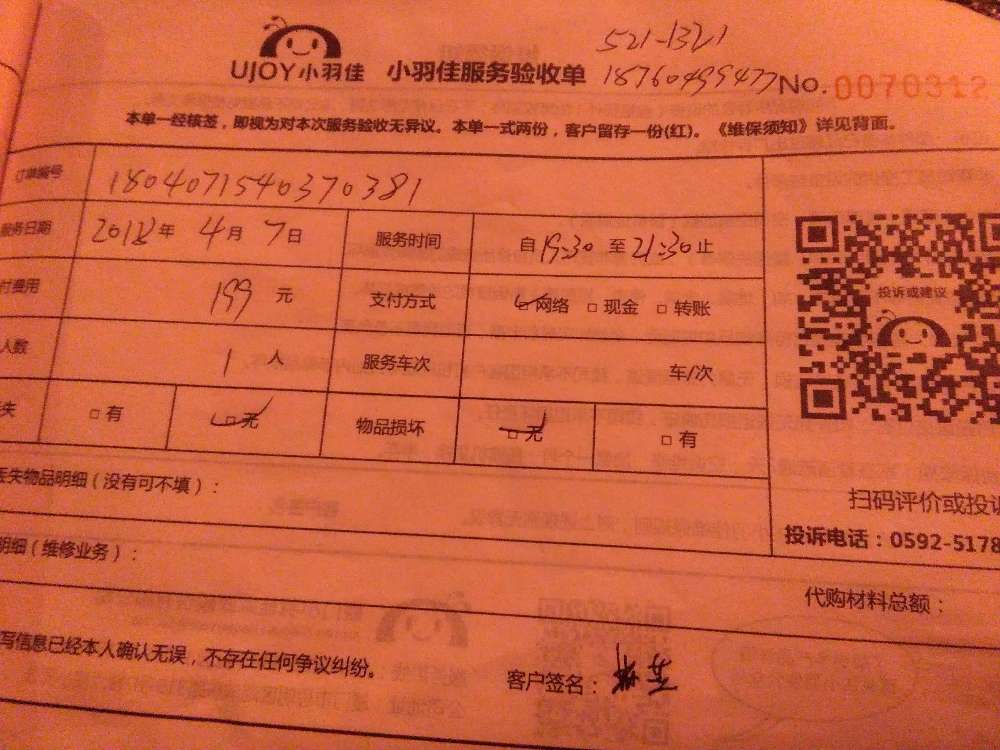 521-1321
UJOY小羽佳 小羽佳服务验收单 18760499477 No. 0070312
本单一经核签，即视为对本次服务验收无异议。本单一式两份，客户留存一份(红)。《维保须知》详见背面。
订单编号 1804071540370381
服务日期 2018年 4月 7日 服务时间 自19:30 至21:30止
付费用 199 元 支付方式 网络 现金 转账
人数 1 人 服务车次 车/次
失 有 无 物品损坏 无 有
投诉或建议
丢失物品明细（没有可不填）：
扫码评价或投诉
投诉电话：0592-5178
明细（维修业务）：
代购材料总额：
写信息已经本人确认无误，不存在任何争议纠纷。
客户签名：